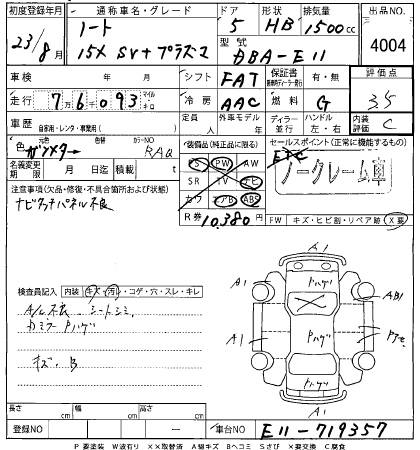 初度登録年月 通称車名・グレード ドア 形状 排気量 出品NO
23/8月 ノート 15X SV+プラズマ 5 HB 1500cc 4004
型式 DBA-E11
車検 年 月 シフト FAT 保証書 有・無 評価点
走行 7万6千093 マイル キロ 冷房 AAC 燃料 G 35
車歴 自家用・レンタ・事業用( ) 定員 人 外車モデル 年 ディーラー 並行 ハンドル 左・右 内装評価 C
色 元色 ガンメタ 色替 カラーNO RAQ
装備品(純正品に限る) セールスポイント(正常に機能するもの)
PS PW AW
ノークレーム車
名義変更期限 月 日迄 積載 t
SR TV ナビ
カワ エアB ABS
注意事項(欠品・修復・不具合箇所および状態)
ナビタッチパネル不良
R券 10,380円
FW キズ・ヒビ割・リペア跡・X要
検査員記入 内装 キズ・汚レ・コゲ・穴・スレ・キレ
A/L不良 シートシミ
カミラーPハゲ
キズ・B
A1
A1 Pハゲ AB1
X
A1 Pハゲ
Pハゲ
A1
長さ cm 幅 cm 高さ cm
登録NO 車台NO E11-719357
P 要塗装 W波有り ××取替済 A線キズ Bヘコミ Sさび ×要交換 C腐食